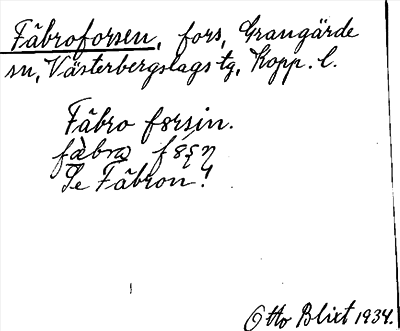 Fäbroforsen, fors, Grangärde
sn, Västerbergslags tg, Kopp. l.
Fäbro forsin.
Se Fäbron!
Otto Blixt 1934.